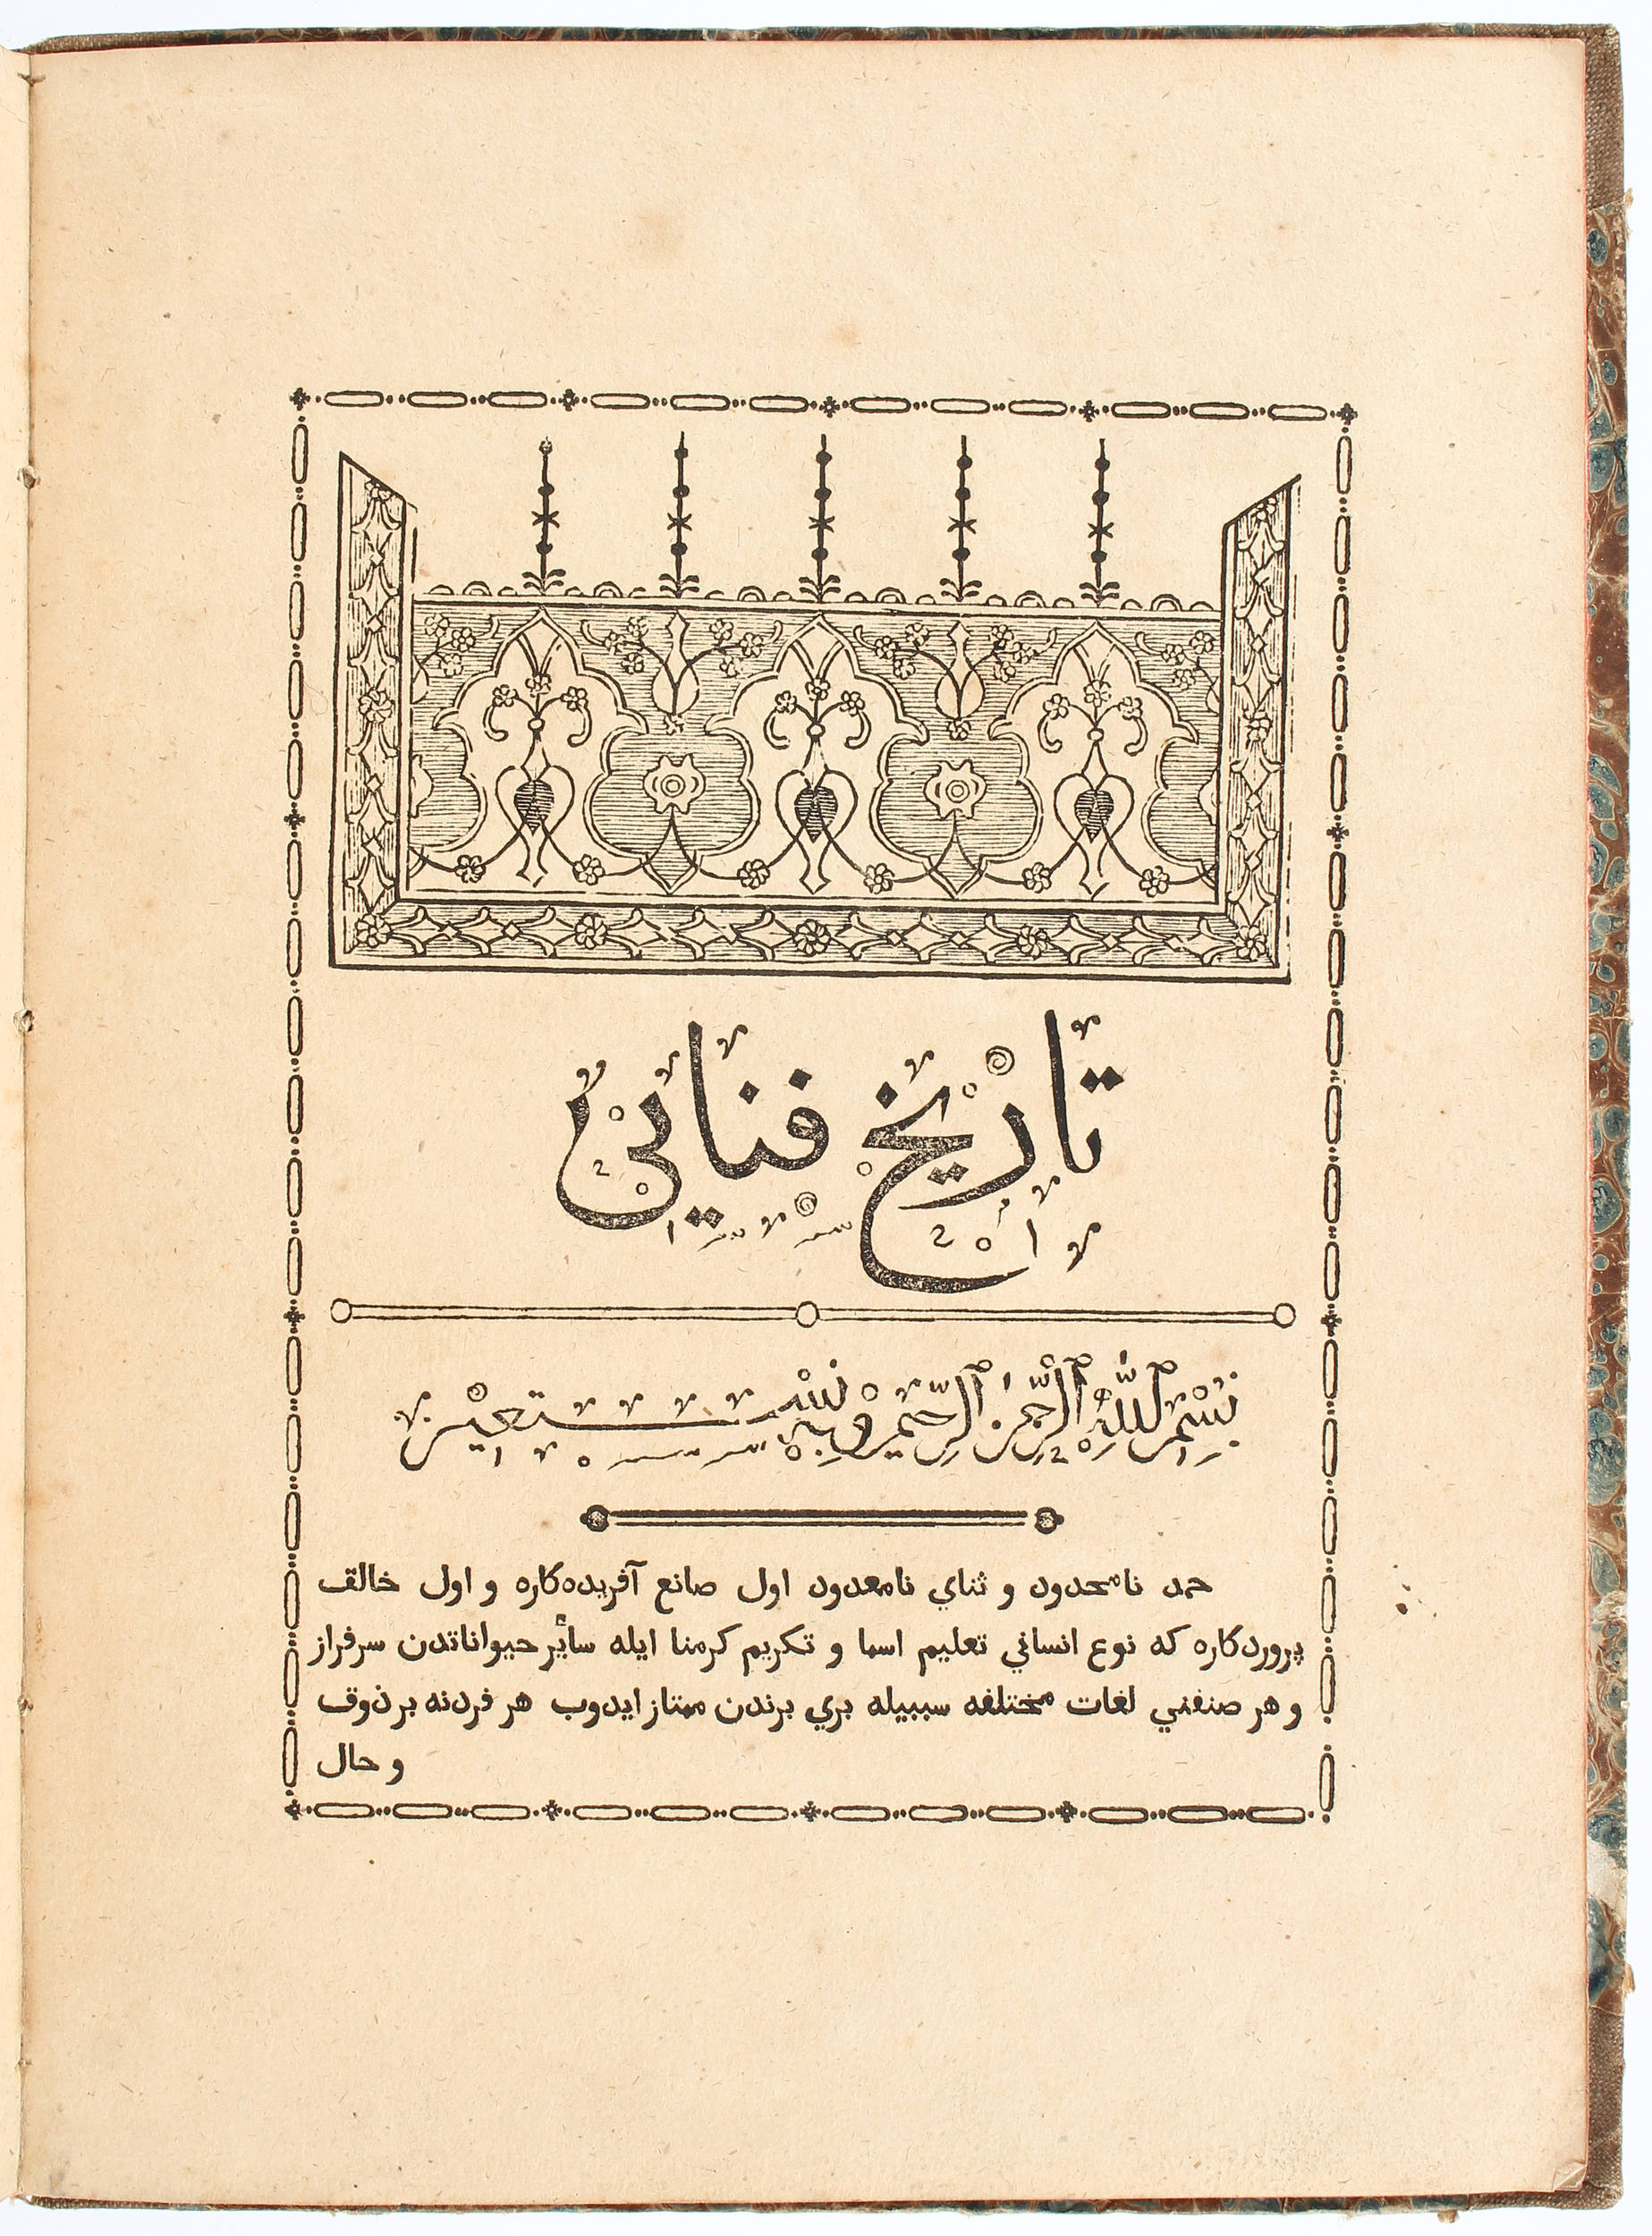 تاريخ فنايى
بسم الله الرحمن الرحيم وبه نستعين
حمد نامحدود و ثناي نامعدود اول صانع آفريده‌كاره و اول خالق
پروردكاره كه نوع انساني تعليم اسما و تكريم كرمنا ايله سائر حيواناتدن سرفراز
و هر صنفني لغات مختلفه سببيله بري برندن ممتاز ايدوب هر فردنه بر ذوق
و حال